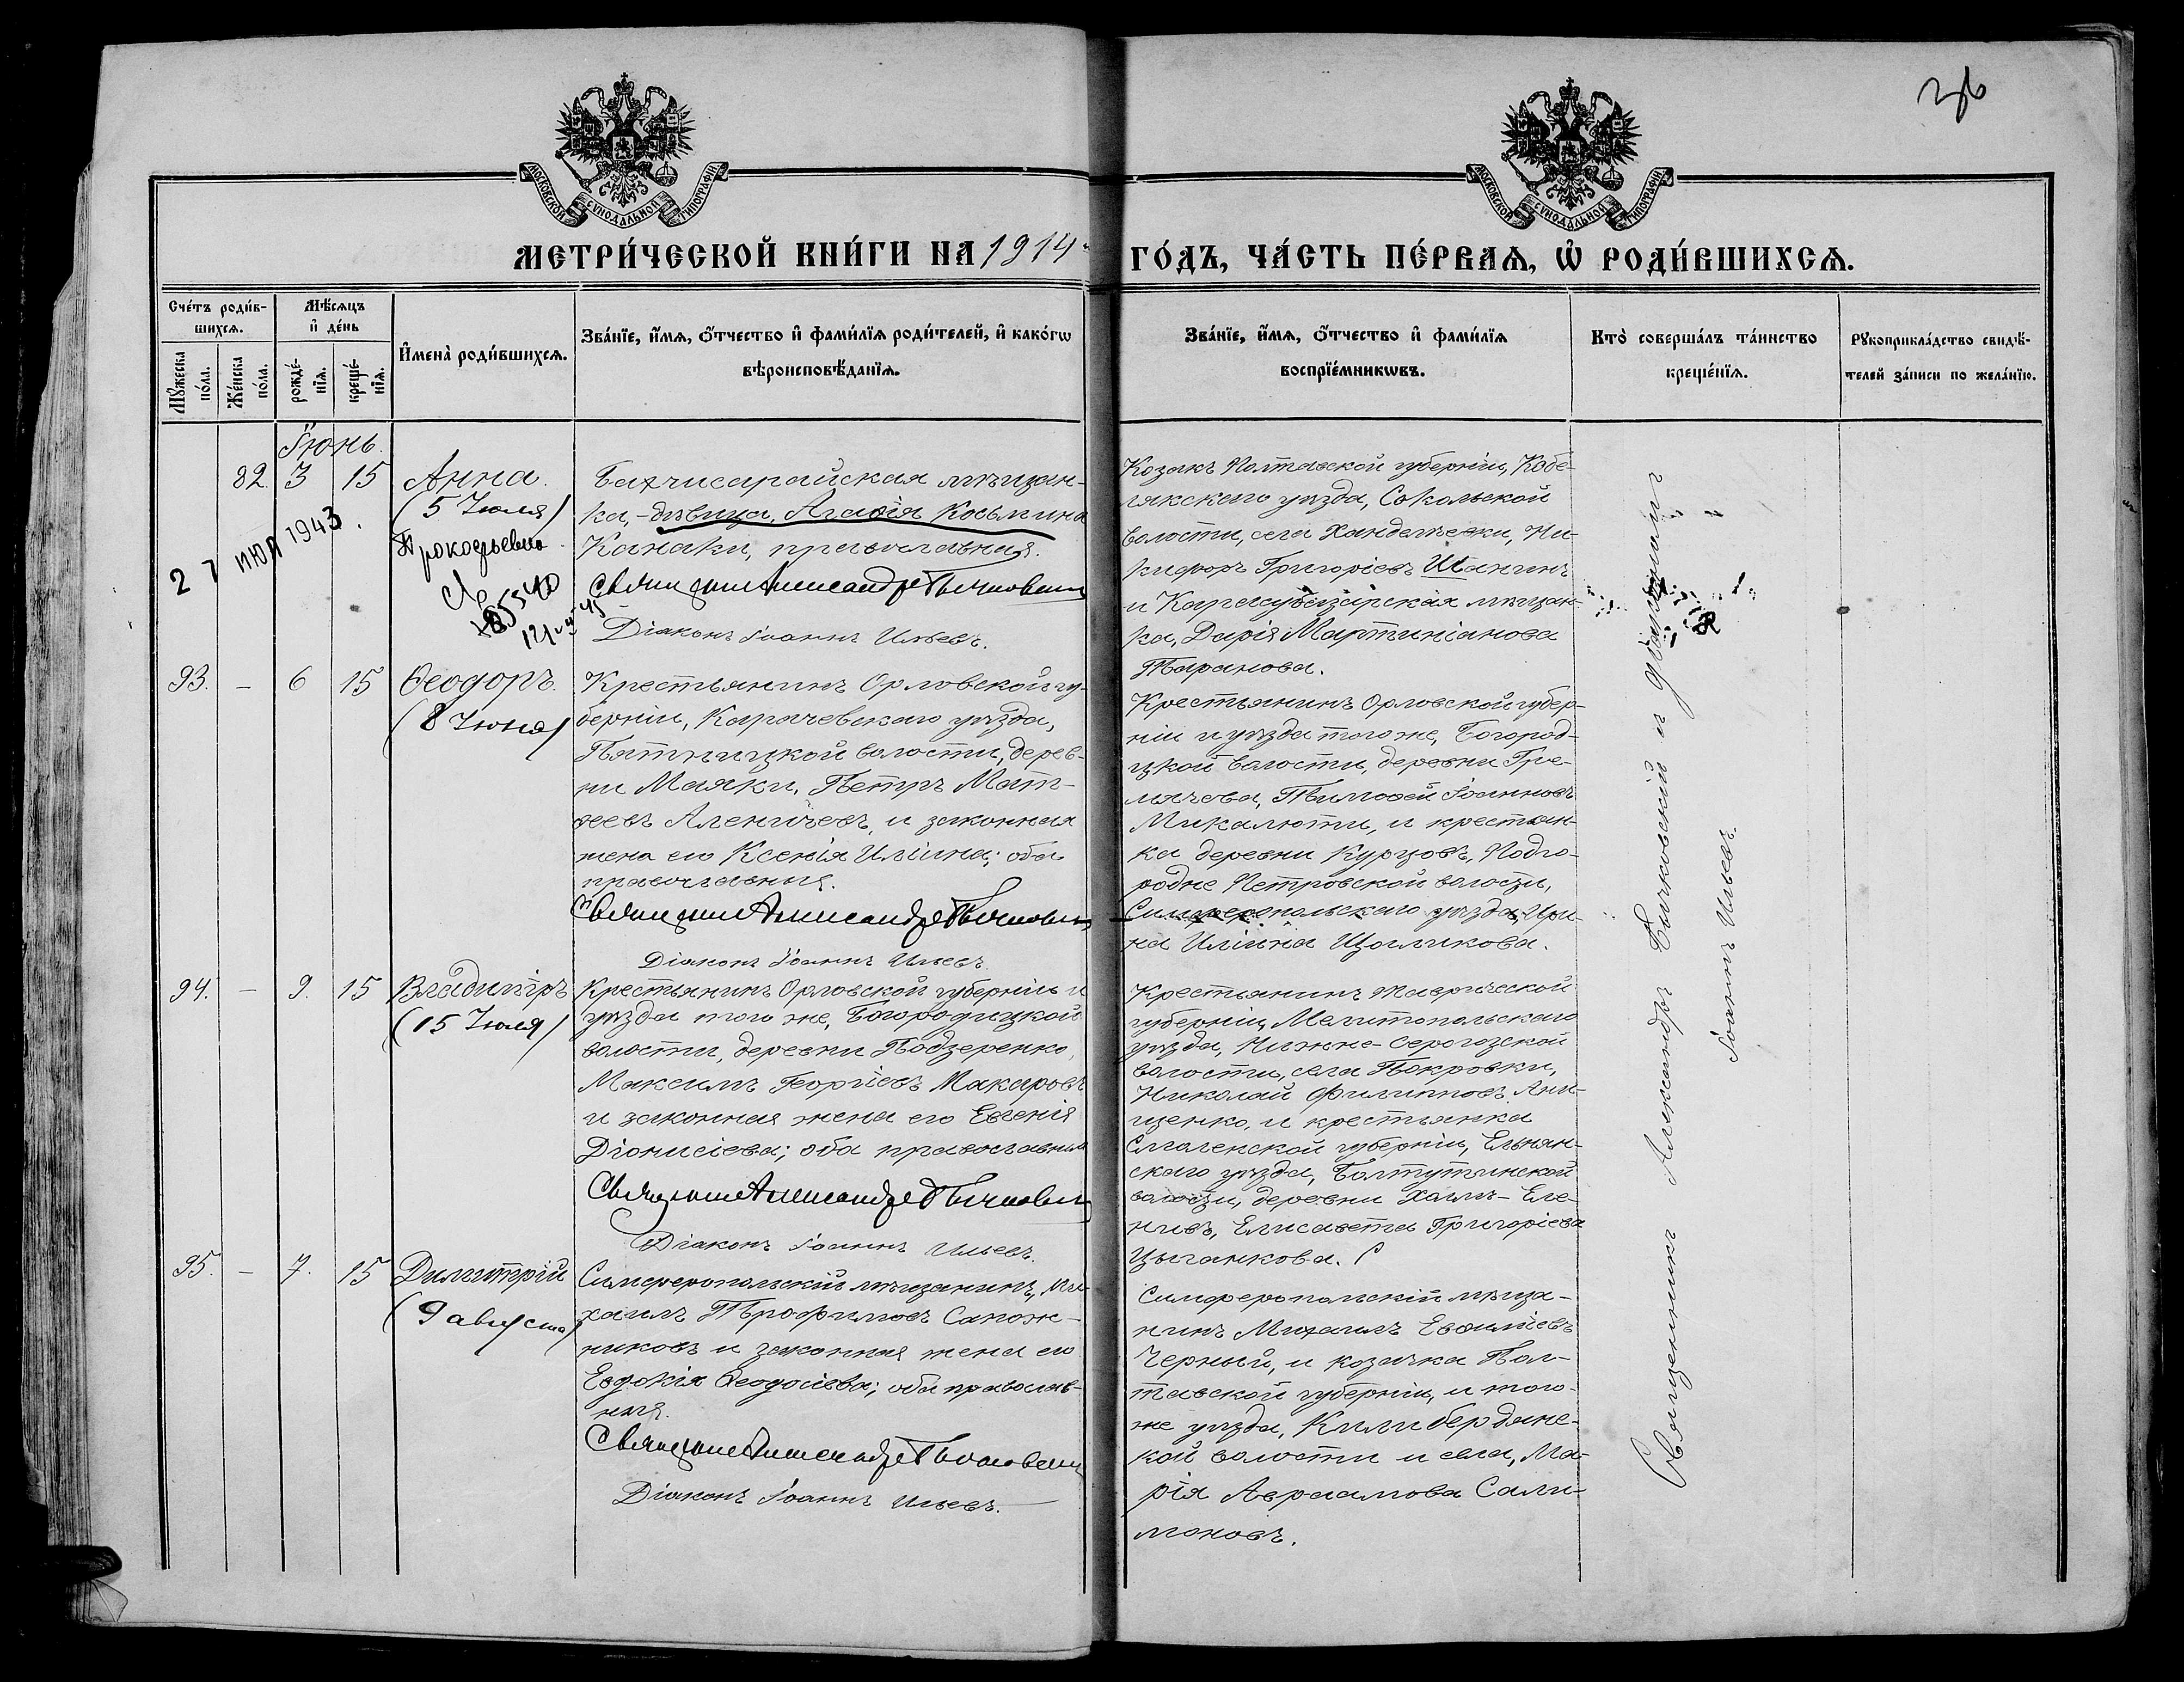 36
МОСКОВСКОЙ СѴНОДАЛЬНОЙ ТИПОГРАФІИ
МОСКОВСКОЙ СѴНОДАЛЬНОЙ ТИПОГРАФІИ
МЕТРИ́ЧЕСКОЙ КНИ́ГИ НА 1914
ГО́ДЪ, ЧА́СТЬ ПЕ́РВАѦ, Ѡ҆ РОДИ́ВШИХСѦ.
Сче́тъ роди́в-
шихсѧ.
Мꙋ́жеска по́ла.
Же́нска по́ла.
Мѣ́сѧцъ
и҆ де́нь
рожде́-нїѧ.
креще́-нїѧ.
И҆мена̀ роди́вшихсѧ.
Зва́нїе, и҆́мѧ, ѻ҆́тчество и҆ фами́лїѧ роди́телей, и҆ како́гѡ
вѣроисповѣ́данїѧ.
Зва́нїе, и҆́мѧ, ѻ҆́тчество и҆ фами́лїѧ
воспрїе́мникѡвъ.
Кто̀ соверша́лъ та́инство
креще́нїѧ.
Рꙋкоприкла́дство свидѣ́-
телей за́писи по жела́нїю.
Іюнь.
82. 3 15 Анна.
(5 Іюля)
Прокофьевна
27 ИЮЛ 1943.
Бахчисарайская мѣщан-
ка, - дѣвица, Агаѳія Косьмина
Канаки, православная.
Священникъ Александръ Бычковскій
Діаконъ Іоаннъ Ильевъ.
Козакъ Полтавской губерніи, Кобе-
лякскаго уѣзда, Сокольской
волости, села Ханделѣевки, Ни-
кифоръ Григоріевъ Шанинъ
и Карасубазарская мѣщан-
ка, Дарія Мартиніанова
Таранова.
93. — 6 15 Ѳеодоръ.
(8 Іюня)
Крестьянинъ Орловской гу-
берніи, Карачевскаго уѣзда,
Пятницкой волости, дерев-
ни Маяки, Петръ Мат-
ѳеевъ Аленичевъ, и законная
жена его Ксенія Иліина; оба
православныя.
Священникъ Александръ Бычковскій
Діаконъ Іоаннъ Ильевъ.
Крестьянинъ Орловской губер-
ніи и уѣзда того же, Богород-
ицкой волости, деревни Гре-
мячева, Тимоѳей Іоанновъ
Микалюти, и крестьян-
ка деревни Курцовъ, Подго-
родне Петровской волости,
Симферопольскаго уѣзда, Ири-
на Иліина Щоликова.
94. — 9. 15 Владиміръ
(15 Іюля)
Крестьянинъ Орловской губерніи и
уѣзда того же, Богородицкой
волости, деревни Подзеренко,
Максимъ Георгіевъ Макаровъ
и законная жена его Евгенія
Діонисіева; оба православныя
Священникъ Александръ Бычковскій
Діаконъ Іоаннъ Ильевъ.
Крестьянинъ Таврической
губерніи, Мелитопольскаго
уѣзда, Нижне-Серогозской
волости, села Покровки,
Николай Филипповъ Они-
щенко, и крестьянка
Смоленской губерніи, Ельнин-
скаго уѣзда, Болтутинской
волости, деревни
Елисавета Григоріева
Цыганкова.
95. — 7. 15 Димитрій
(9 августа)
Симферопольскій мѣщанинъ, Ми-
хаилъ Трофимовъ Сапож-
никовъ и законная жена его
Евдокія Ѳеодосіева; оба православ-
ныя.
Священникъ Александръ Бычковскій
Діаконъ Іоаннъ Ильевъ.
Симферопольскій мѣща-
нинъ Михаилъ Евѳиміевъ
Черный, и козачка Пол-
тавской губерніи, и того-
же уѣзда, Килибердянс-
кой волости и села, Ма-
рія Авраамова Сали-
моновъ.
Священникъ Александръ Бычковскій и діаконъ
Іоаннъ Ильевъ.